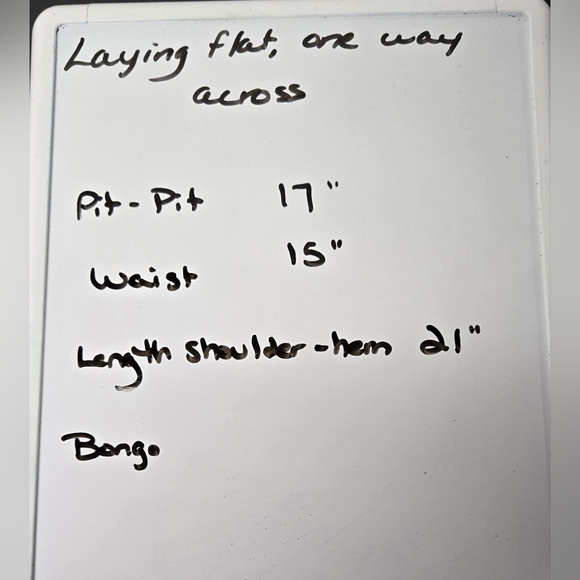 Laying flat, one way
across
Pit-Pit 17"
Waist 15"
Length shoulder-hem 21"
Bongo